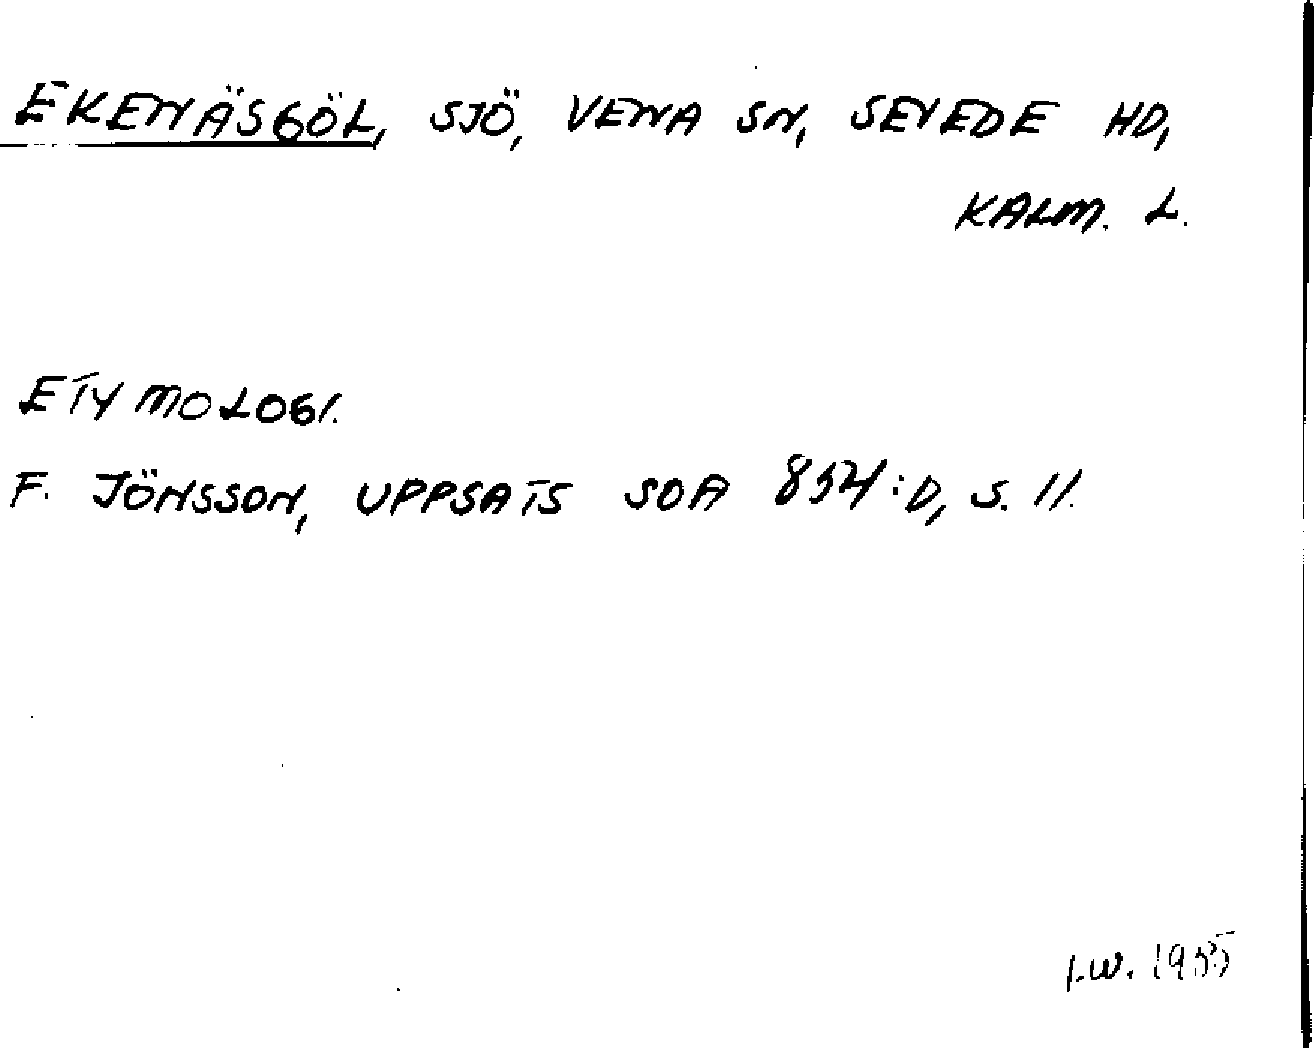 EKENÄSGÖL, SJÖ, VENA SN, SEVEDE HD,
KALM. L.
ETYMOLOGI.
F. JÖNSSON, UPPSATS SOA 854:D, S. 11.
I.W. 1955